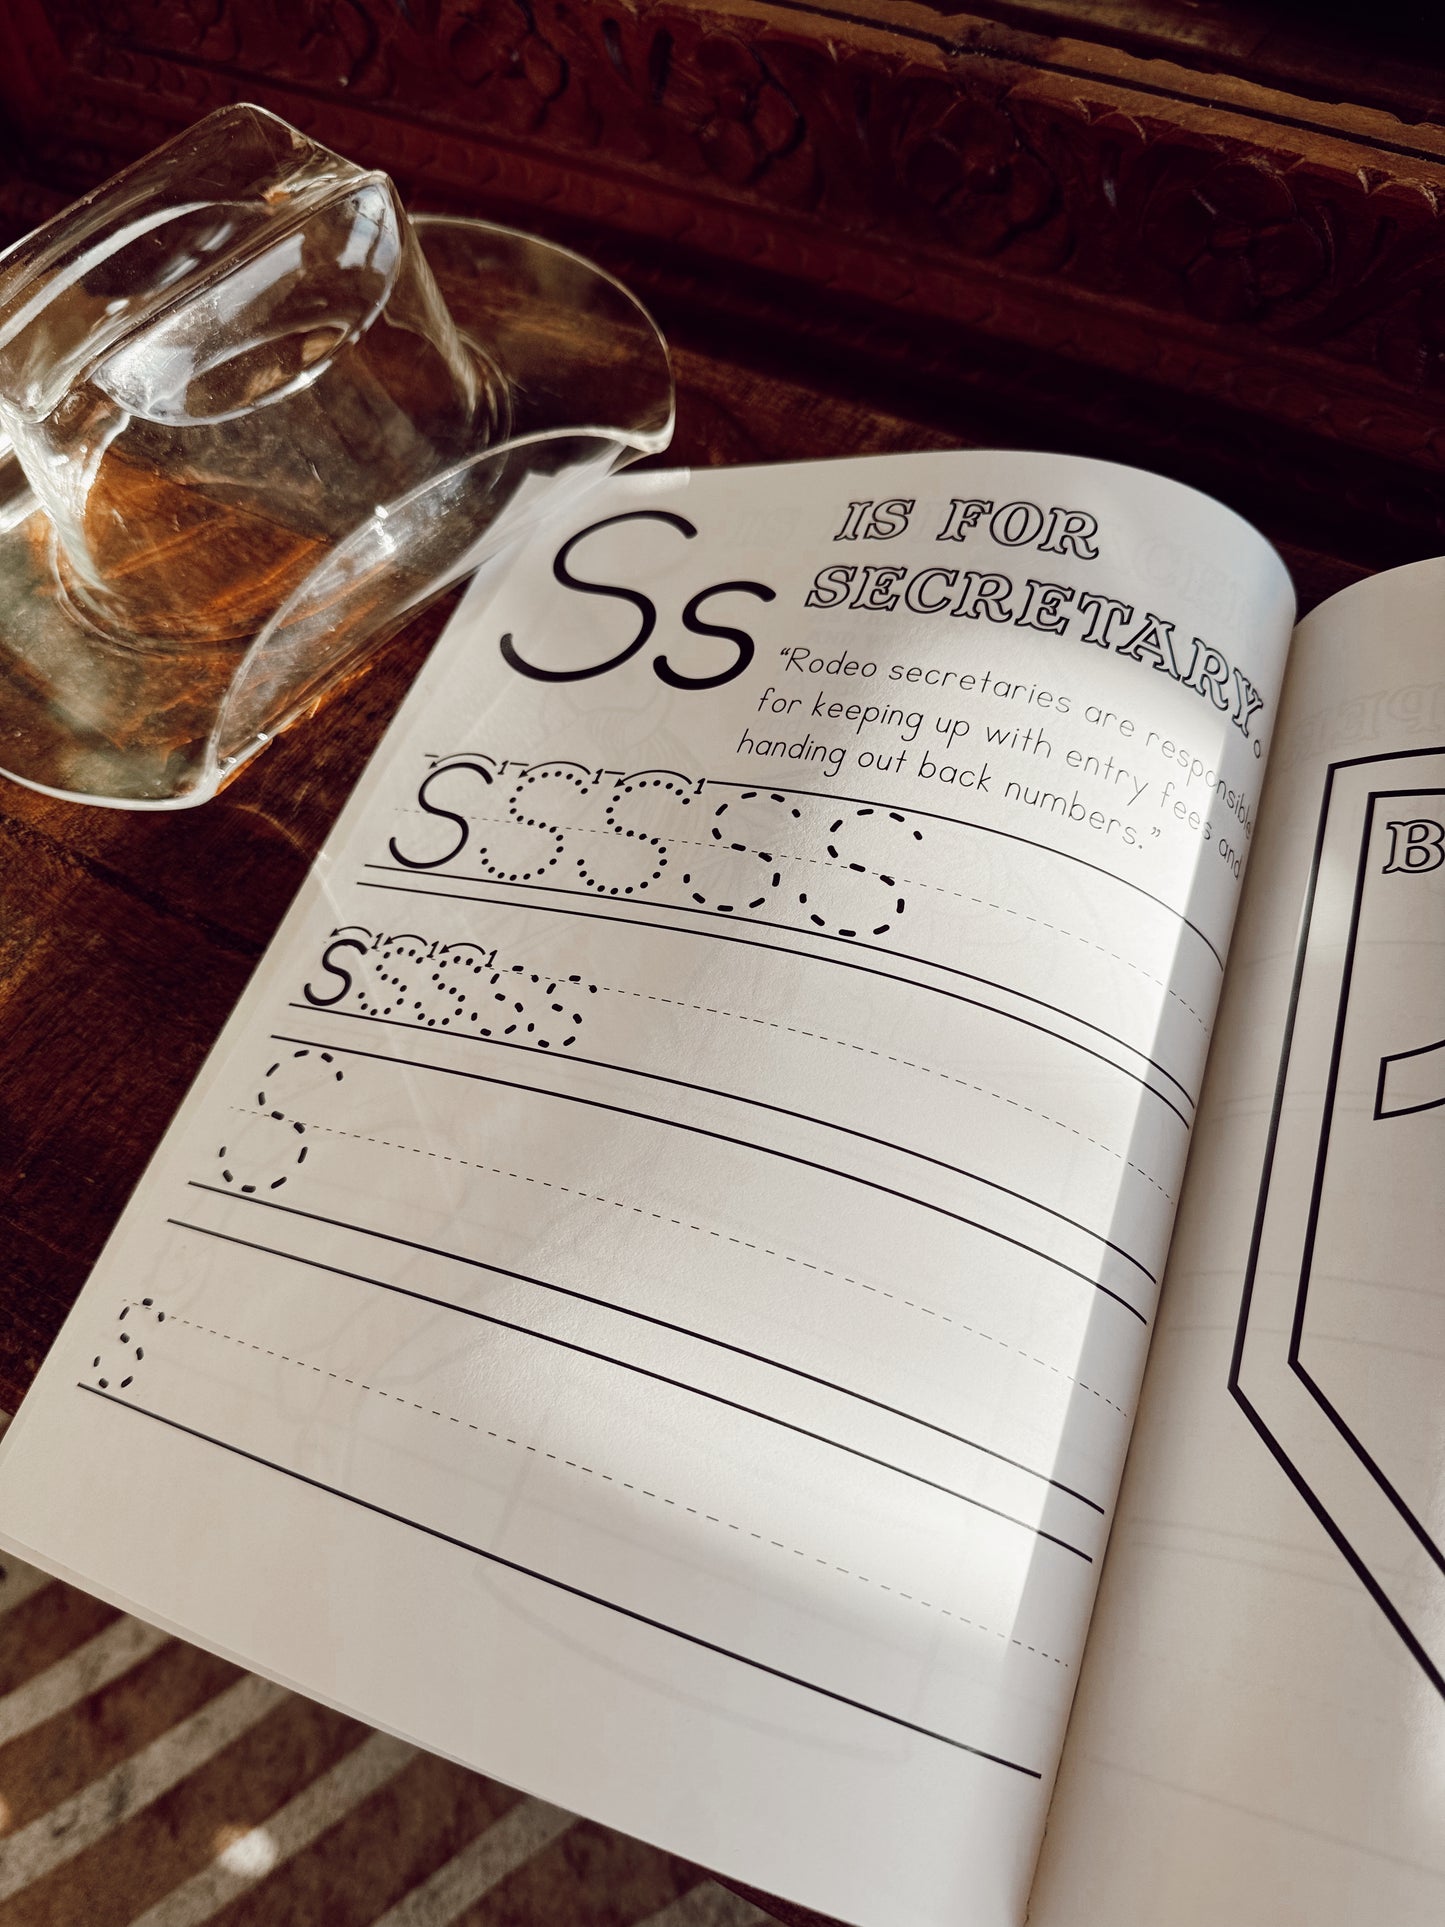 Ss
IS FOR
SECRETARY.
“Rodeo secretaries are responsible
for keeping up with entry fees and
handing out back numbers.”
S 1 S 1 S 1 S S
s 1 s 1 s 1 s s
S
s
B